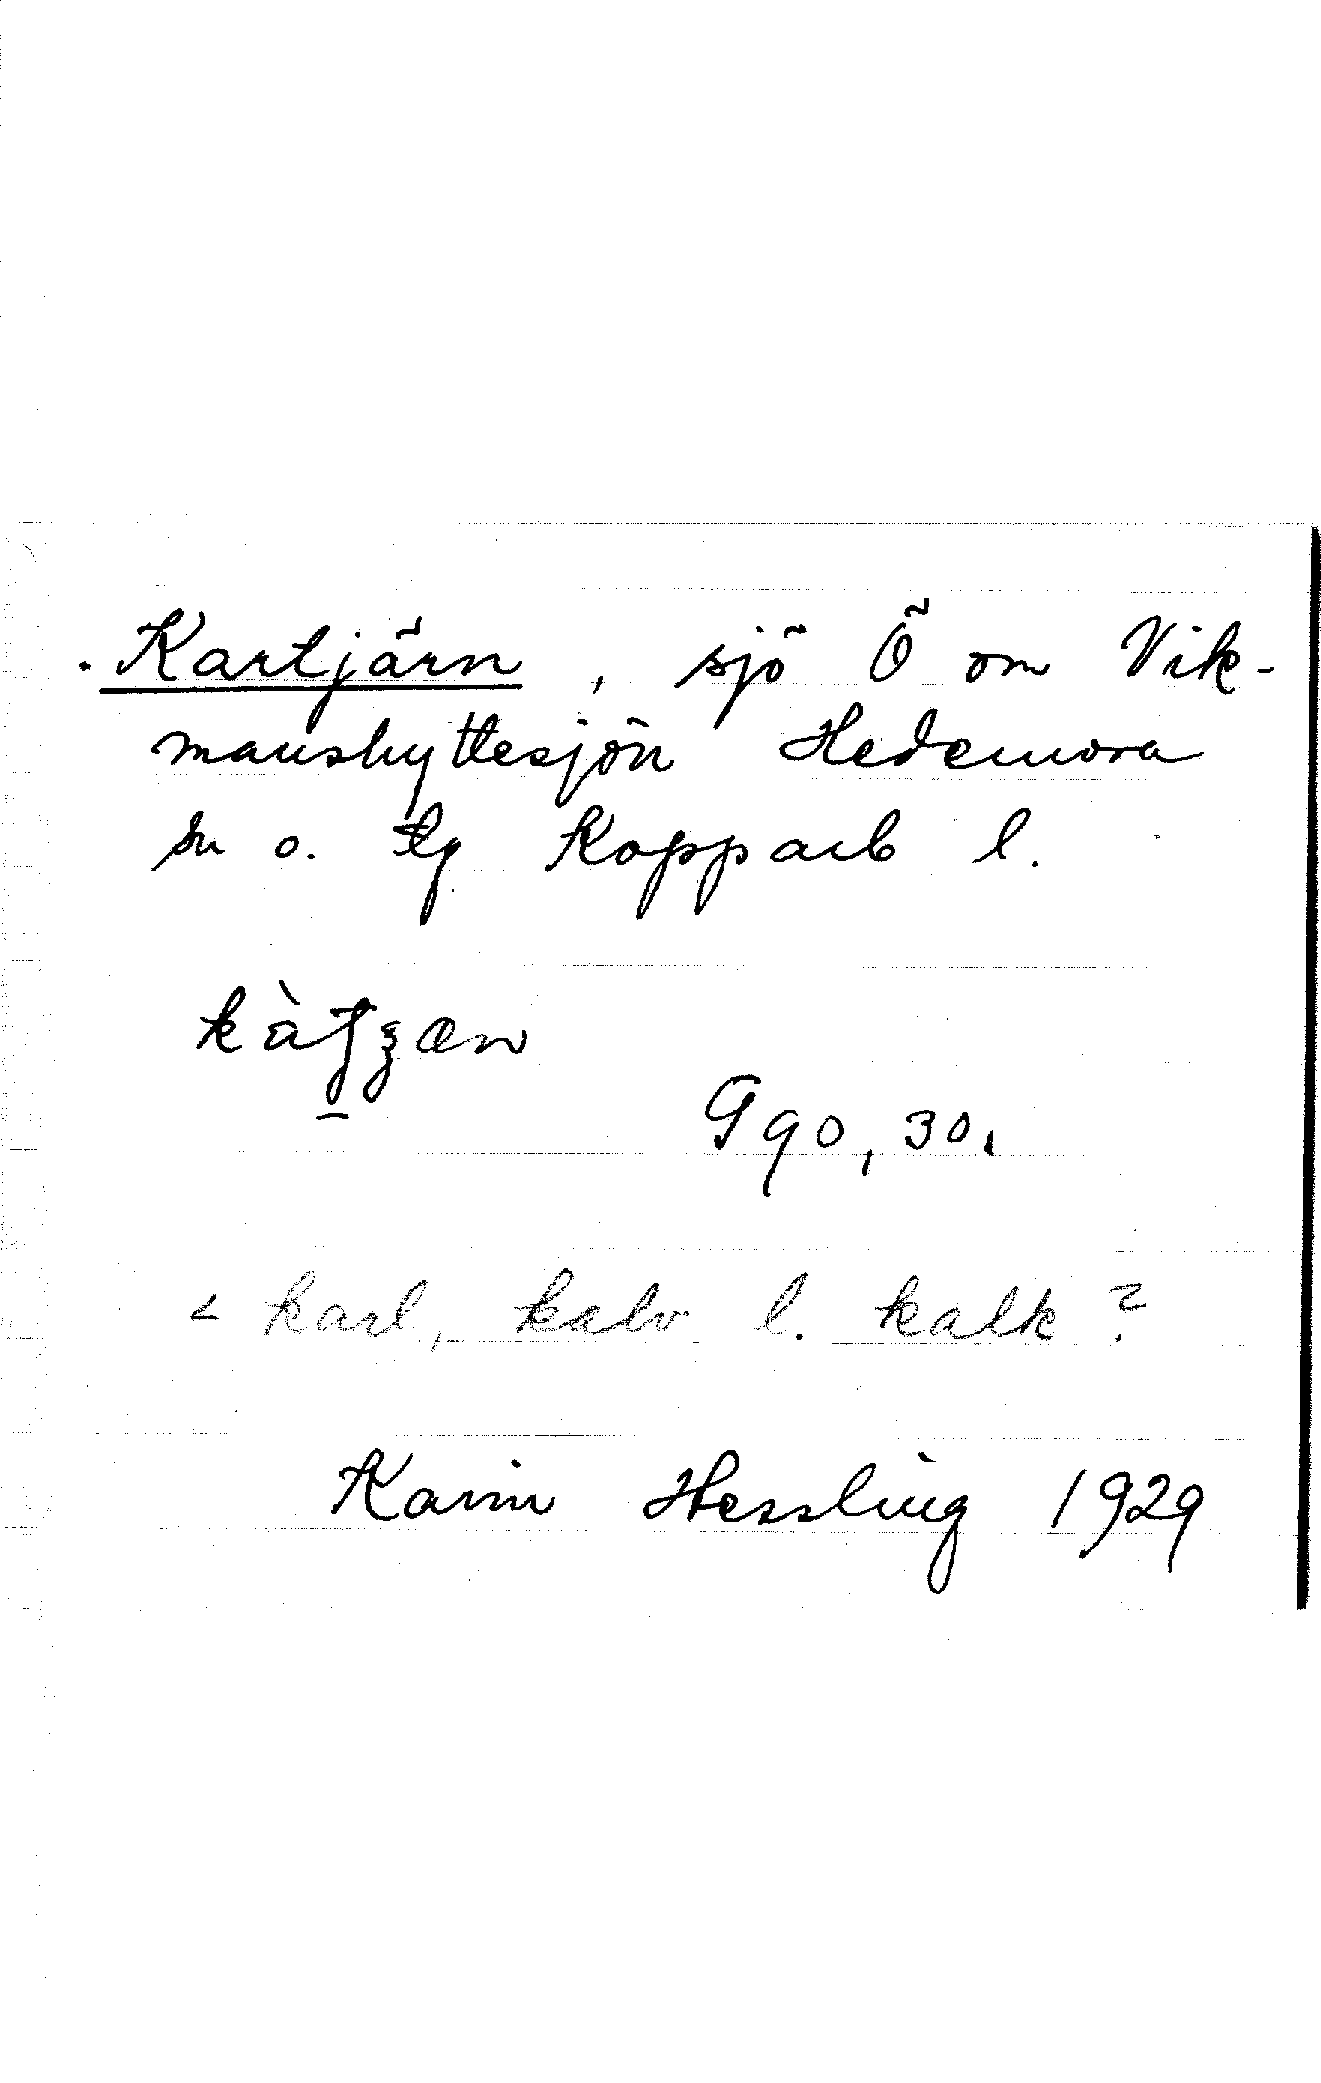 Kartjärn, sjö Ö om Vik-
manshyttesjön Hedemora
sn o. tg Kopparb l.
G 90, 30.
< karl, kalv l. kalk ?
Karin Hessling 1929